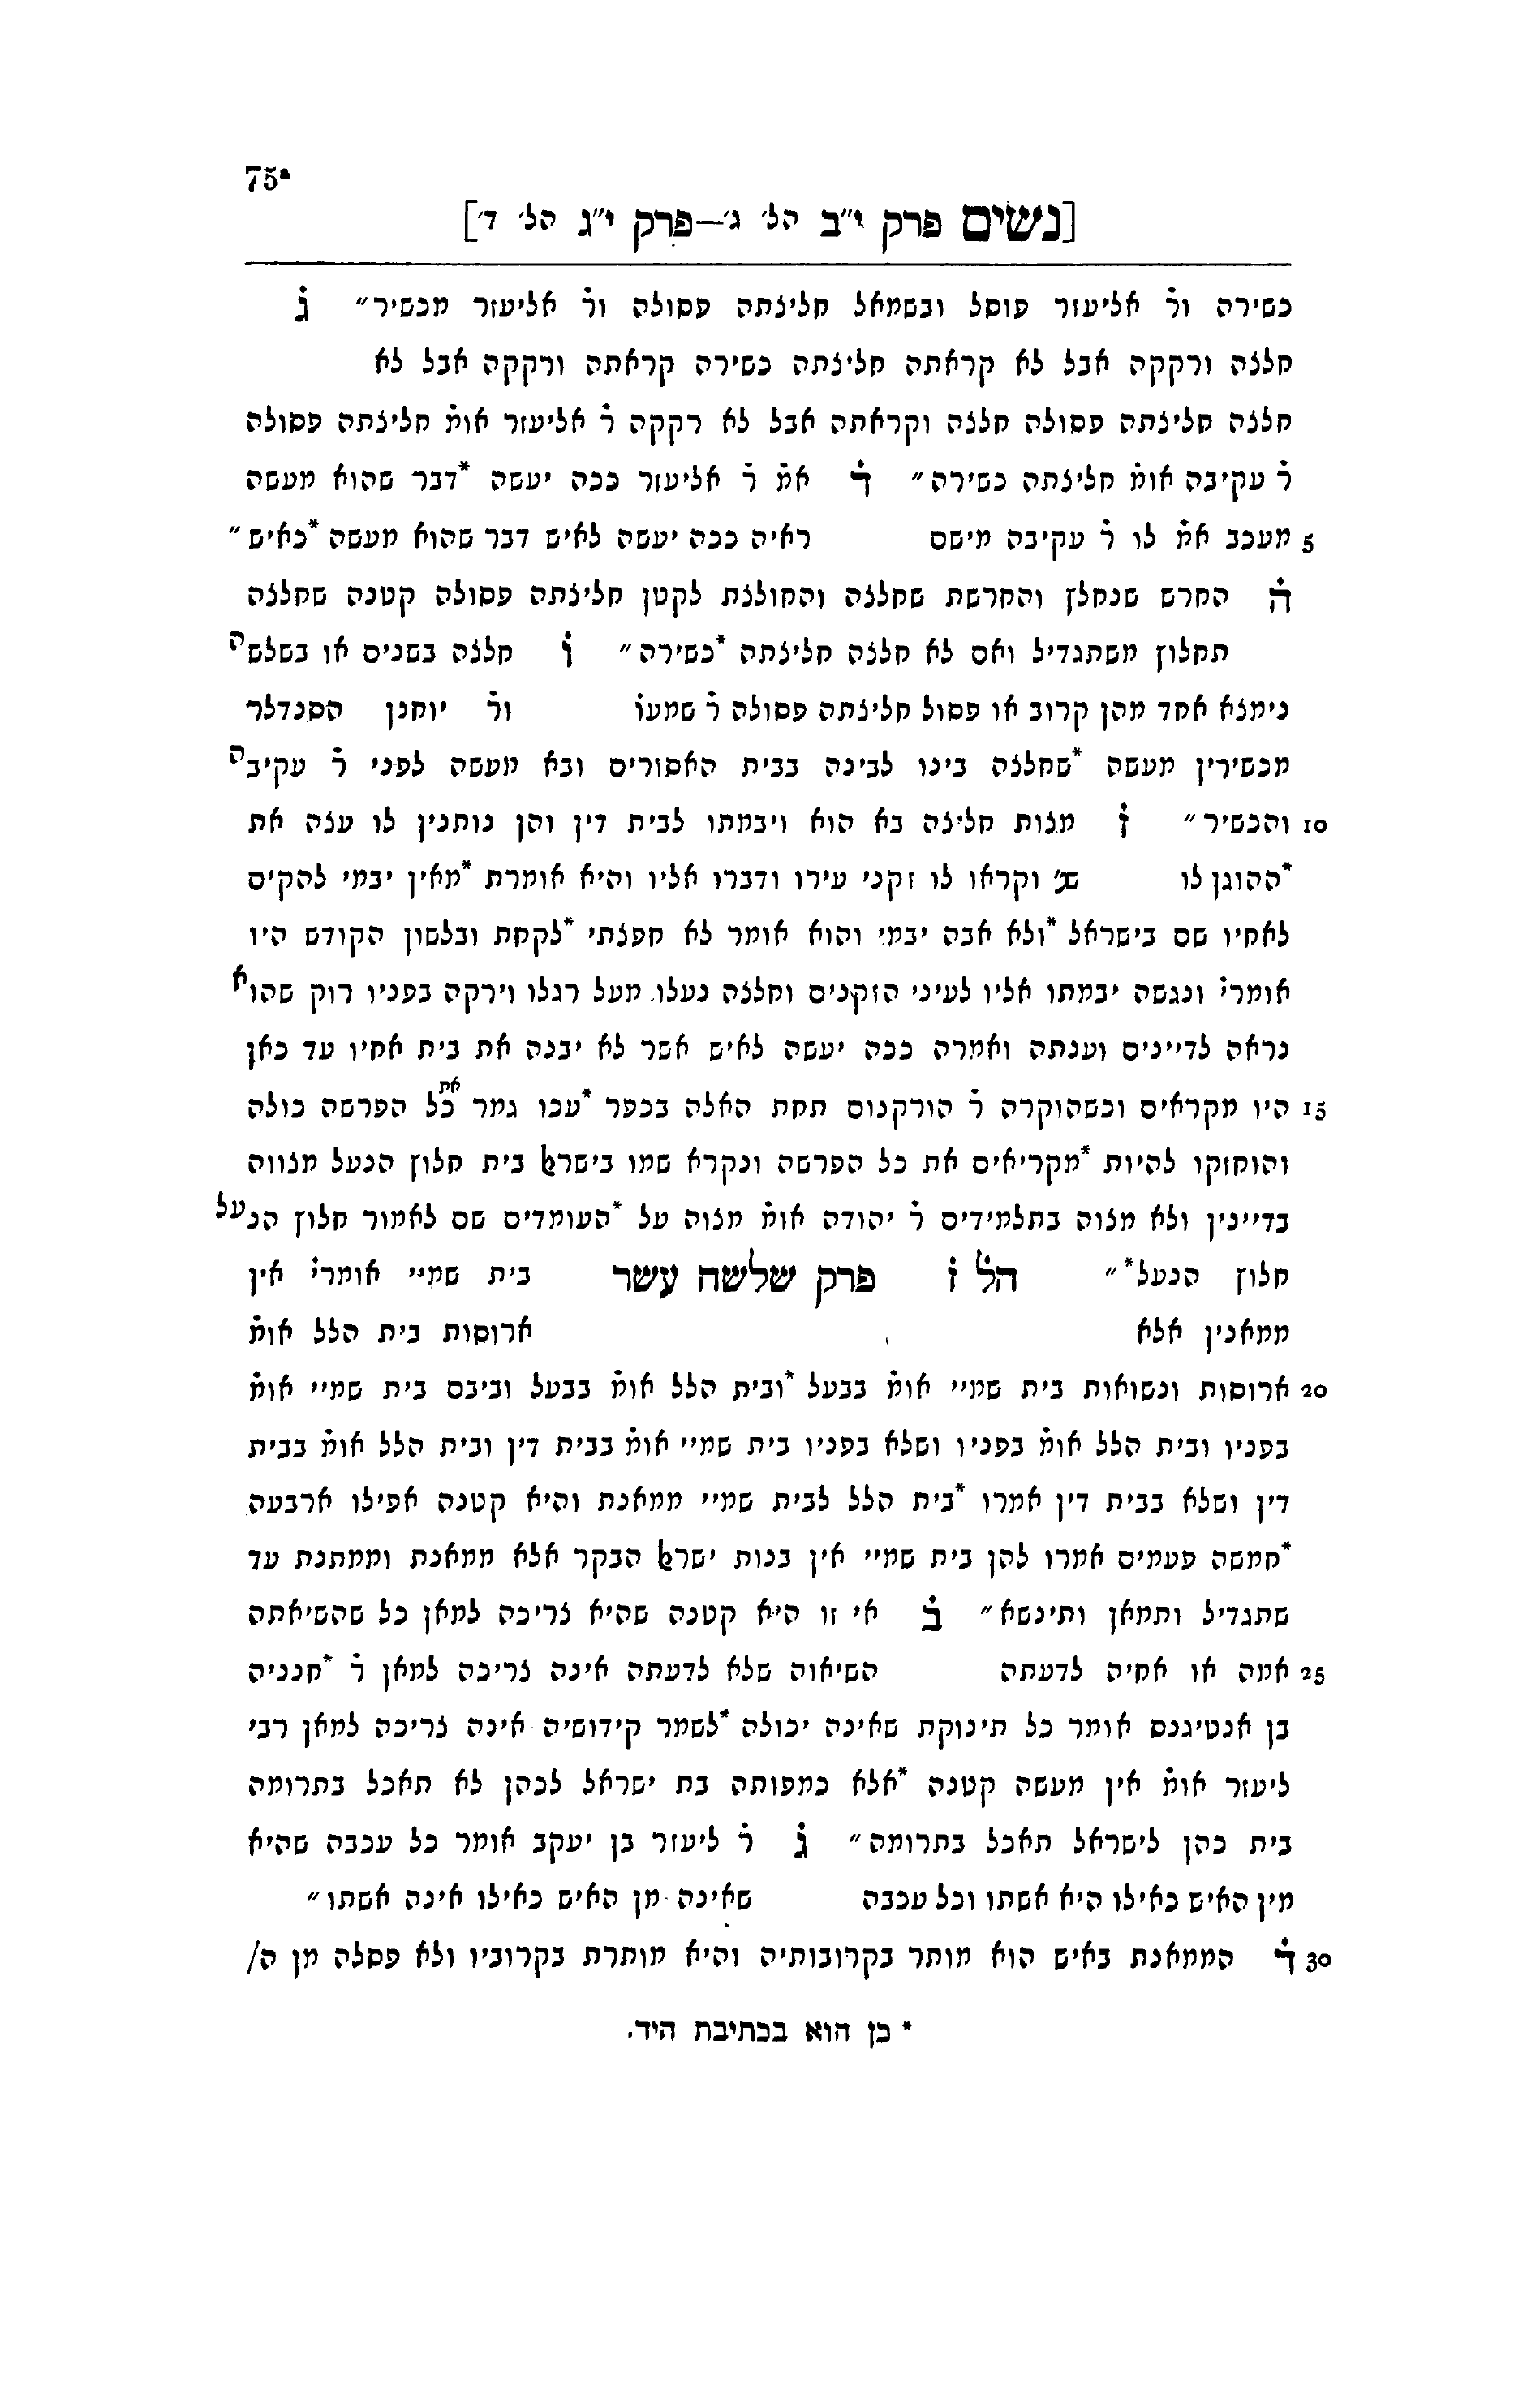 75ª
[נשים פרק י״ב הל׳ ג׳—פרק י״ג הל׳ ד׳]
כשירה ור̇ אליעזר פוסל ובשמאל חליצתה פסולה ור̇ אליעזר מכשיר״ ג̇
חלצה ורקקה אבל לא קראתה חליצתה כשירה קראתה ורקקה אבל לא
חלצה חליצתה פסולה חלצה וקראתה אבל לא רקקה ר̇ אליעזר אומ̇ חליצתה פסולה
ר̇ עקיבה אומ̇ חליצתה כשירה״ ד̇ אמ̇ ר̇ אליעזר ככה יעשה *דבר שהוא מעשה
5 מעכב אמ̇ לו ר̇ עקיבה מישם ראיה ככה יעשה לאיש דבר שהוא מעשה *באיש״
ה̇ החרש שנחלץ והחרשת שחלצה והחולצת לקטן חליצתה פסולה קטנה שחלצה
תחלוץ משתגדיל ואם לא חלצה חליצתה *כשירה״ ו̇ חלצה בשנים או בשלשה
נימצא אחד מהן קרוב או פסול חליצתה פסולה ר̇ שמעו̇ ור̇ יוחנן הסנדלר
מכשירין מעשה *שחלצה בינו לבינה בבית האסורים ובא מעשה לפני ר̇ עקיבה
10 והכשיר״ ז̇ מצות חליצה בא הוא ויבמתו לבית דין והן נותנין לו עצה את
*ההוגן לו שנ׳ וקראו לו זקני עירו ודברו אליו והיא אומרת *מאין יבמי להקים
לאחיו שם בישראל *ולא אבה יבמי והוא אומר לא חפצתי *לקחת ובלשון הקודש היו
אומרי̇ ונגשה יבמתו אליו לעיני הזקנים וחלצה נעלו מעל רגלו וירקה בפניו רוק שהוא
נראה לדיינים וענתה ואמרה ככה יעשה לאיש אשר לא יבנה את בית אחיו עד כאן
15 היו מקראים וכשהוקרה ר̇ הורקנוס תחת האלה בכפר *עכו גמר את כל הפרשה כולה
והוחזקו להיות *מקריאים את כל הפרשה ונקרא שמו בישרﭏ בית חלוץ הנעל מצווה
בדיינין ולא מצוה בתלמידים ר̇ יהודה אומ̇ מצוה על *העומדים שם לאמור חלוץ הנעל
חלוץ הנעל*״ הל̇ ז̇ פרק שלשה עשר בית שמיי אומרי̇ אין
ממאנין אלא ארוסות בית הלל אומ̇
20 ארוסות ונשואות בית שמיי אומ̇ בבעל *ובית הלל אומ̇ בבעל וביבם בית שמיי אומ̇
בפניו ובית הלל אומ̇ בפניו ושלא בפניו בית שמיי אומ̇ בבית דין ובית הלל אומ̇ בבית
דין ושלא בבית דין אמרו *בית הלל לבית שמיי ממאנת והיא קטנה אפילו ארבעה
*חמשה פעמים אמרו להן בית שמיי אין בנות ישרﭏ הבקר אלא ממאנת וממתנת עד
שתגדיל ותמאן ותינשא״ ב̇ אי זו היא קטנה שהיא צריכה למאן כל שהשיאתה
25 אמה או אחיה לדעתה השיאוה שלא לדעתה אינה צריכה למאן ר̇ *חנניה
בן אנטיגנס אומר כל תינוקת שאינה יכולה *לשמר קידושיה אינה צריכה למאן רבי
ליעזר אומ̇ אין מעשה קטנה *אלא כמפותה בת ישראל לכהן לא תאכל בתרומה
בית כהן לישראל תאכל בתרומה״ ג̇ ר̇ ליעזר בן יעקב אומר כל עכבה שהיא
מין האיש כאילו היא אשתו וכל עכבה שאינה מן האיש כאילו אינה אשתו״
30 ד̇ הממאנת באיש הוא מותר בקרובותיה והיא מותרת בקרוביו ולא פסלה מן ה/
* כן הוא בכתיבת היד.